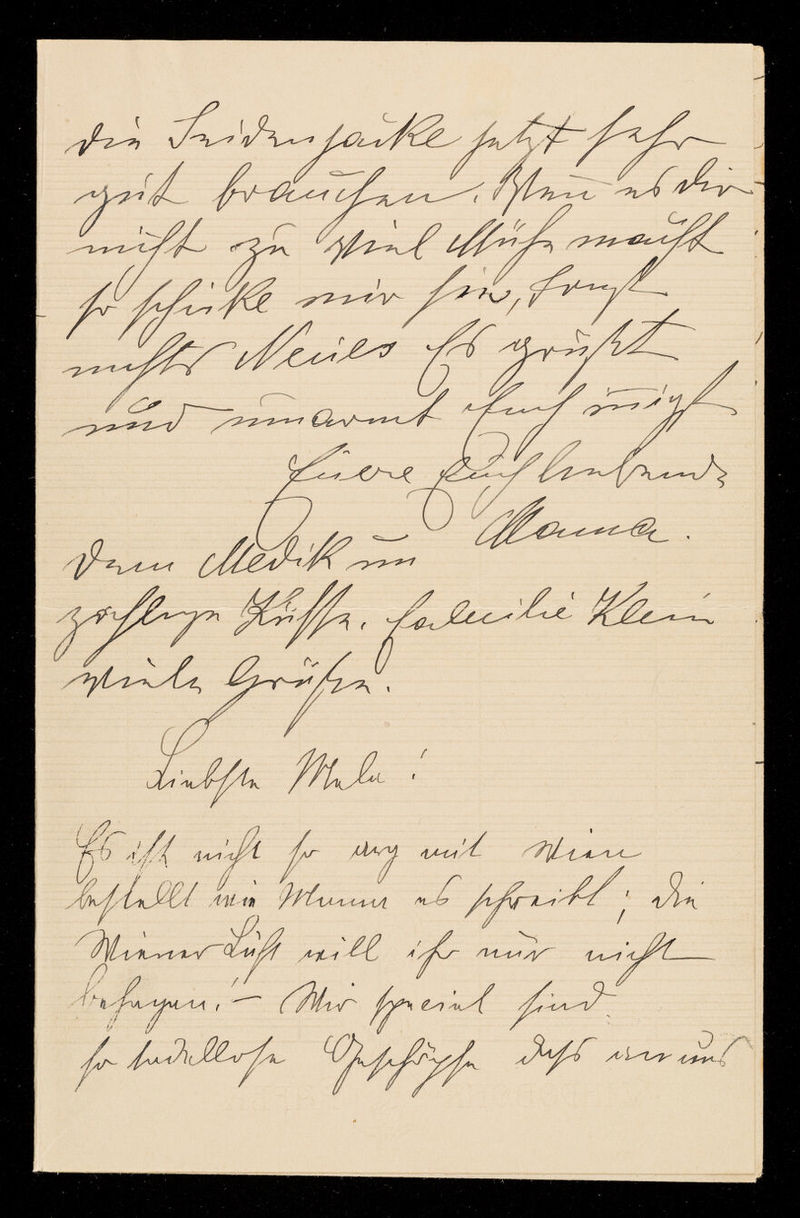 die Seidenjacke jetzt sehr
gut brauchen. Wenn es dir
nicht zu viel Mühe macht
so schicke mir sie, sonst
nichts Neues Es grüßt
und umarmt Euch innigst
Euere Euch liebende
Mama.
Dem Medikun
zahllose Küsse. Familie Klein
viele Grüße.
Liebste Mela!
Es ist nicht so arg mit Wien
bestellt wie Mama es schreibt; die
Wiener Luft will ihr nur nicht
behagen! – Wir speciel sind
so tadellose Geschöpfe dass an uns